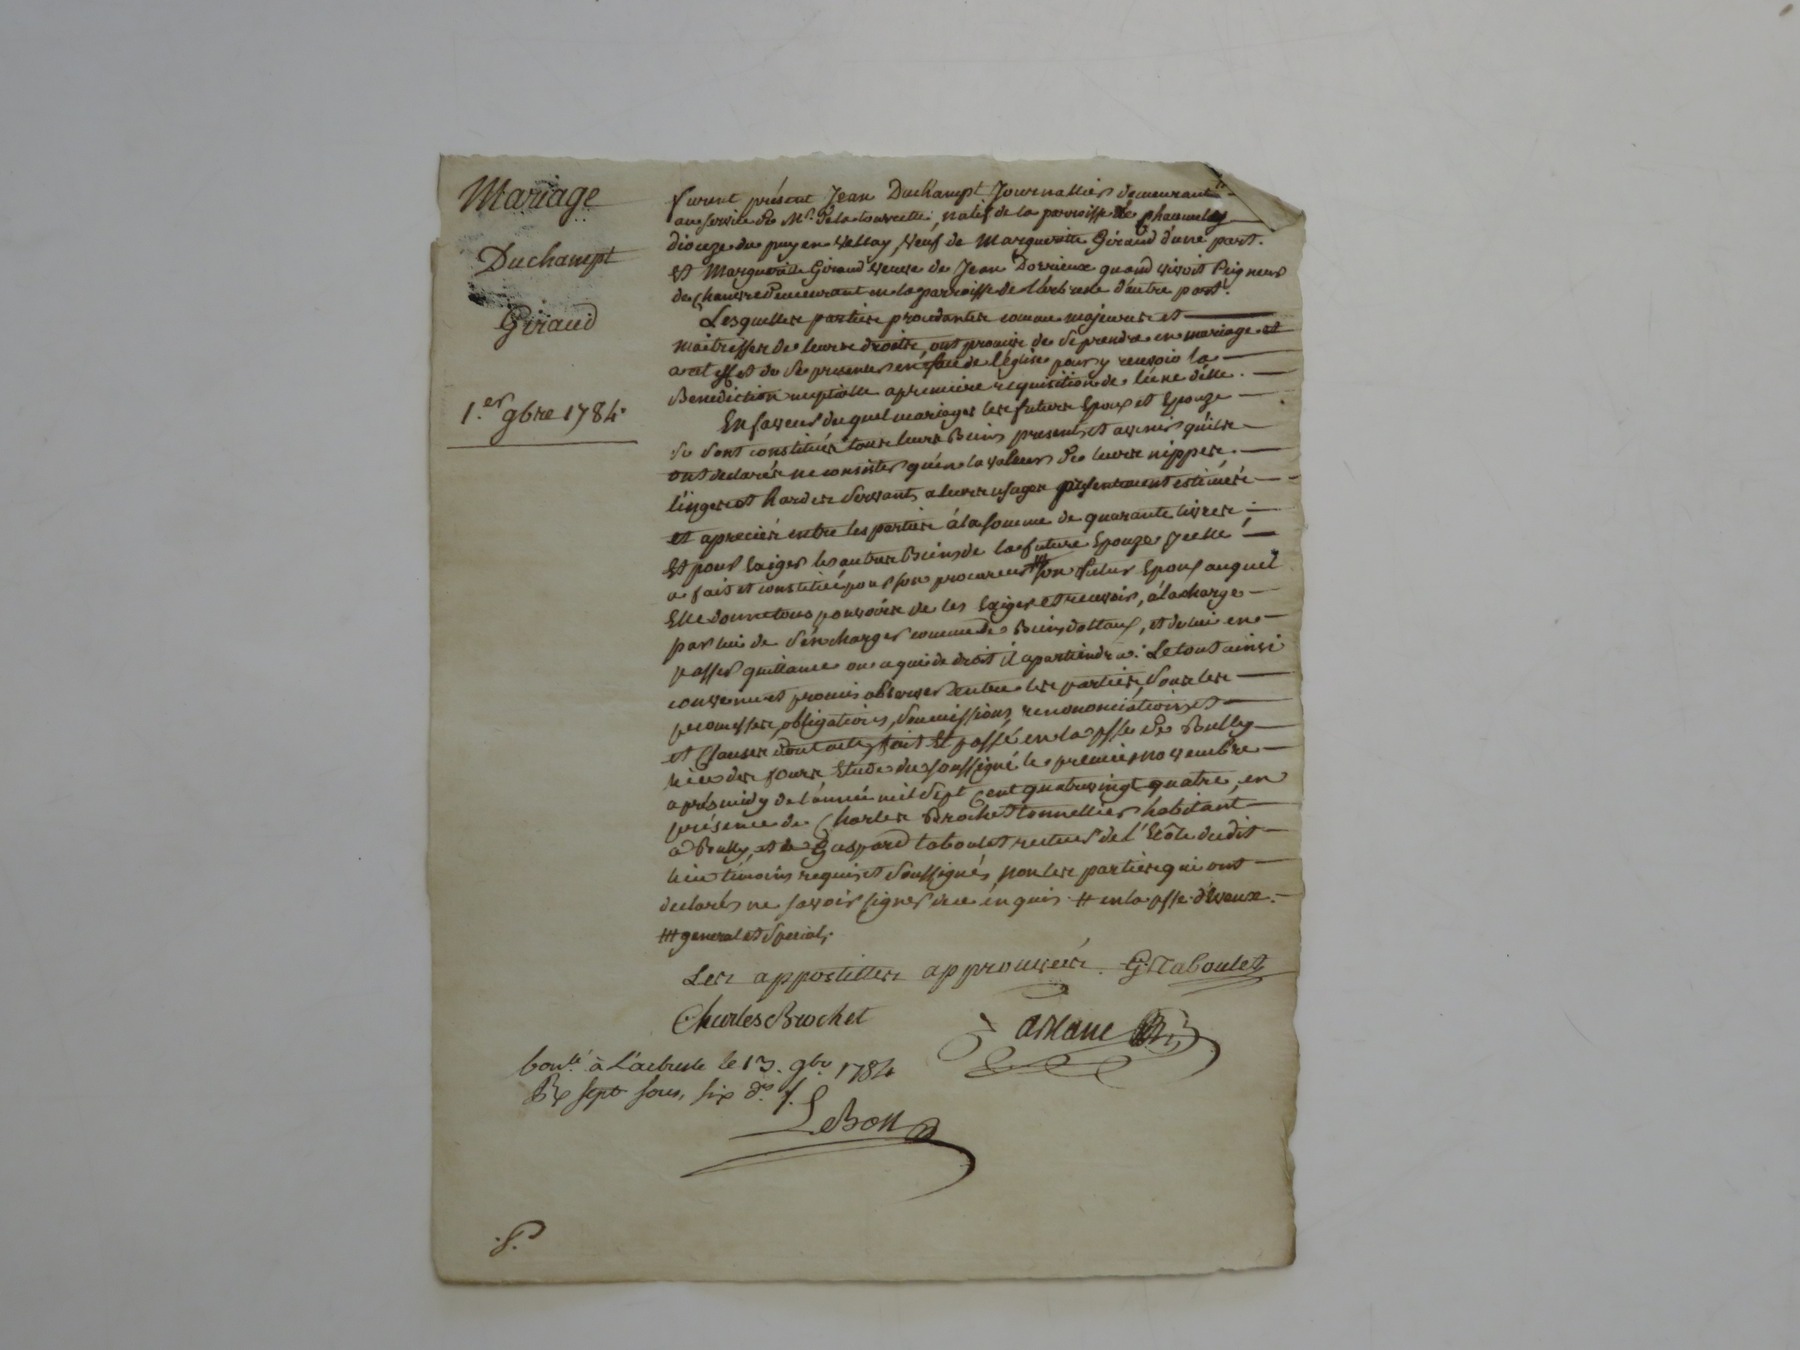 Mariage
Duchampt
Giraud
1.er 9bre 1784.
furent présent Jean Duchampt Journallier demeurant #
au service de Mr. Delatourette, natif de la parroisse de
dioceze du puy en vellay, veuf de Marguerite Giraud d'une part.
Et Marguerite Giraud veuve de Jean Dorrieux quand vivoit Peigneur
de chanvre demeurant en la parroisse de d'autre part.
Lesquelles parties procedantes comme majeures et
maitresses de leurs droits, ont promis de se prendre en mariage et
a cet effet de se presenter en face de l'église pour y recevoir la
Benediction nuptialle a premiere requisition de l'une d'elle.
En faveur du quel mariages les futurs Epoux et Epouze
se sont constitués tous leurs Biens presents et avenir qu'ils
ont declarés ne consister qu'en la valleur de leurs nippes
linges et hardes servants a leurs usages presentement estimés
et apreciés entre les parties à la somme de quarante livres;
Et pour Exiger les autres Biens de la future Epouze y celle
a fait et constitué pour son procureur ### son futur Epoux auquel
Elle donne tous pouvoirs de les Exiger et recevoir, à la charge
par lui de s'en charger comme de Biens dottaux, et de lui en
passer quittance ou a qui de droit il apartiendra. Le tout ainsi
convenu et promis observer entre les parties sous les
promesses, obligations, soumissions, renononciations et
et Clauses dont acte, fait Et passé en la psse de Bully
lieu des fours Etude du soussigné le premier novembre
après midy de l'année mil sept Cent quatre vingt quatre, en
présence de Charles Brochet tonnellier habitant
a Bully, et de Gaspard taboulet recteur de l'Ecôle du dit
lieu témoins requis et soussignés, non les parties qui ont
declarés ne savoir signer de ce enquis # en la psse d'Eveux.
### general et special,
Les appostilles approuvées. G. Taboulet
Charles Brochet
boulé à L'arbresle le 13. 9bre 1784
Rx sept sous, six ds. /.
LeBon